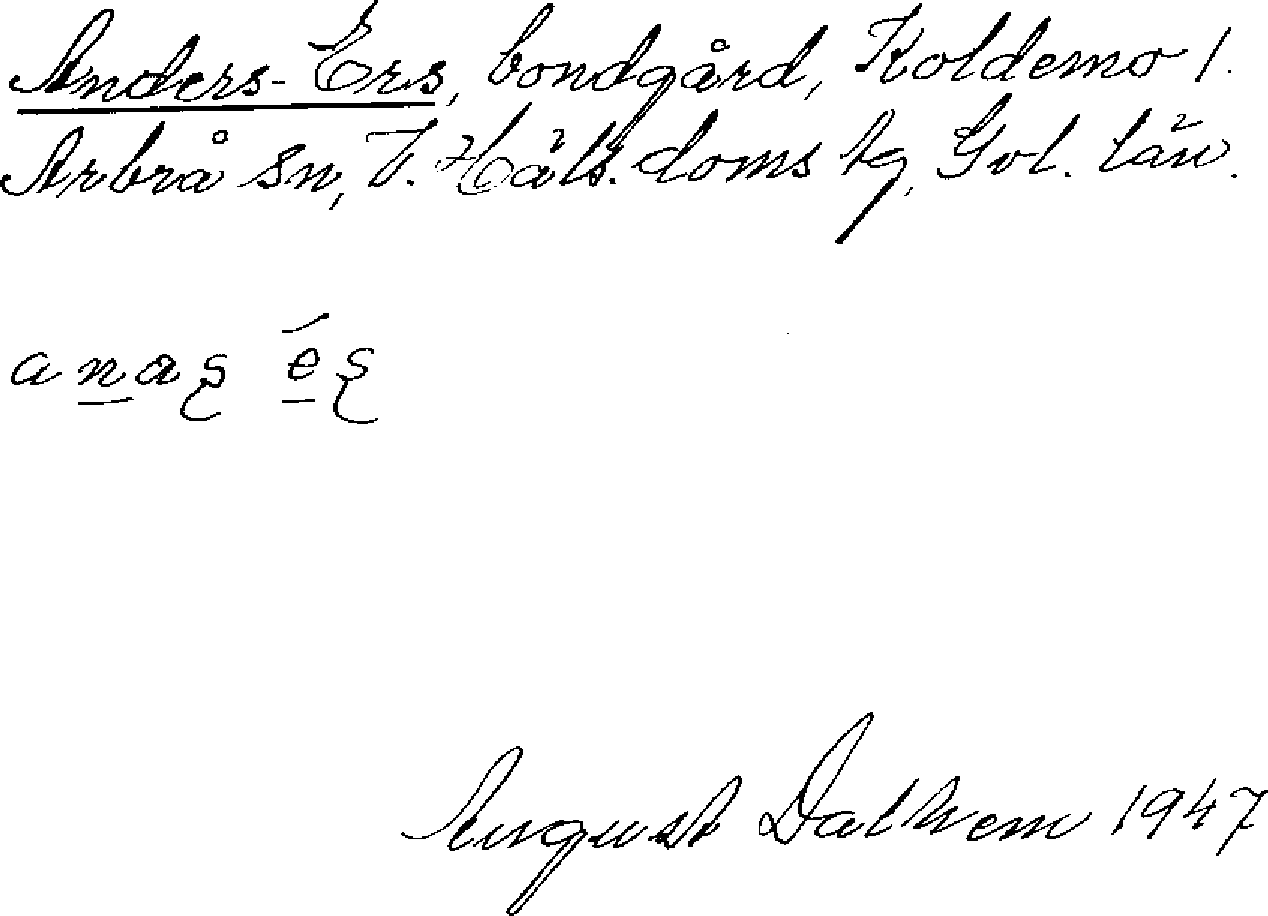 Anders-Ers, bondgård, Koldemo 1.
Arbrå sn, V. Häls. doms tg, Gvl. län.
anaş éş
August Dalhem 1947